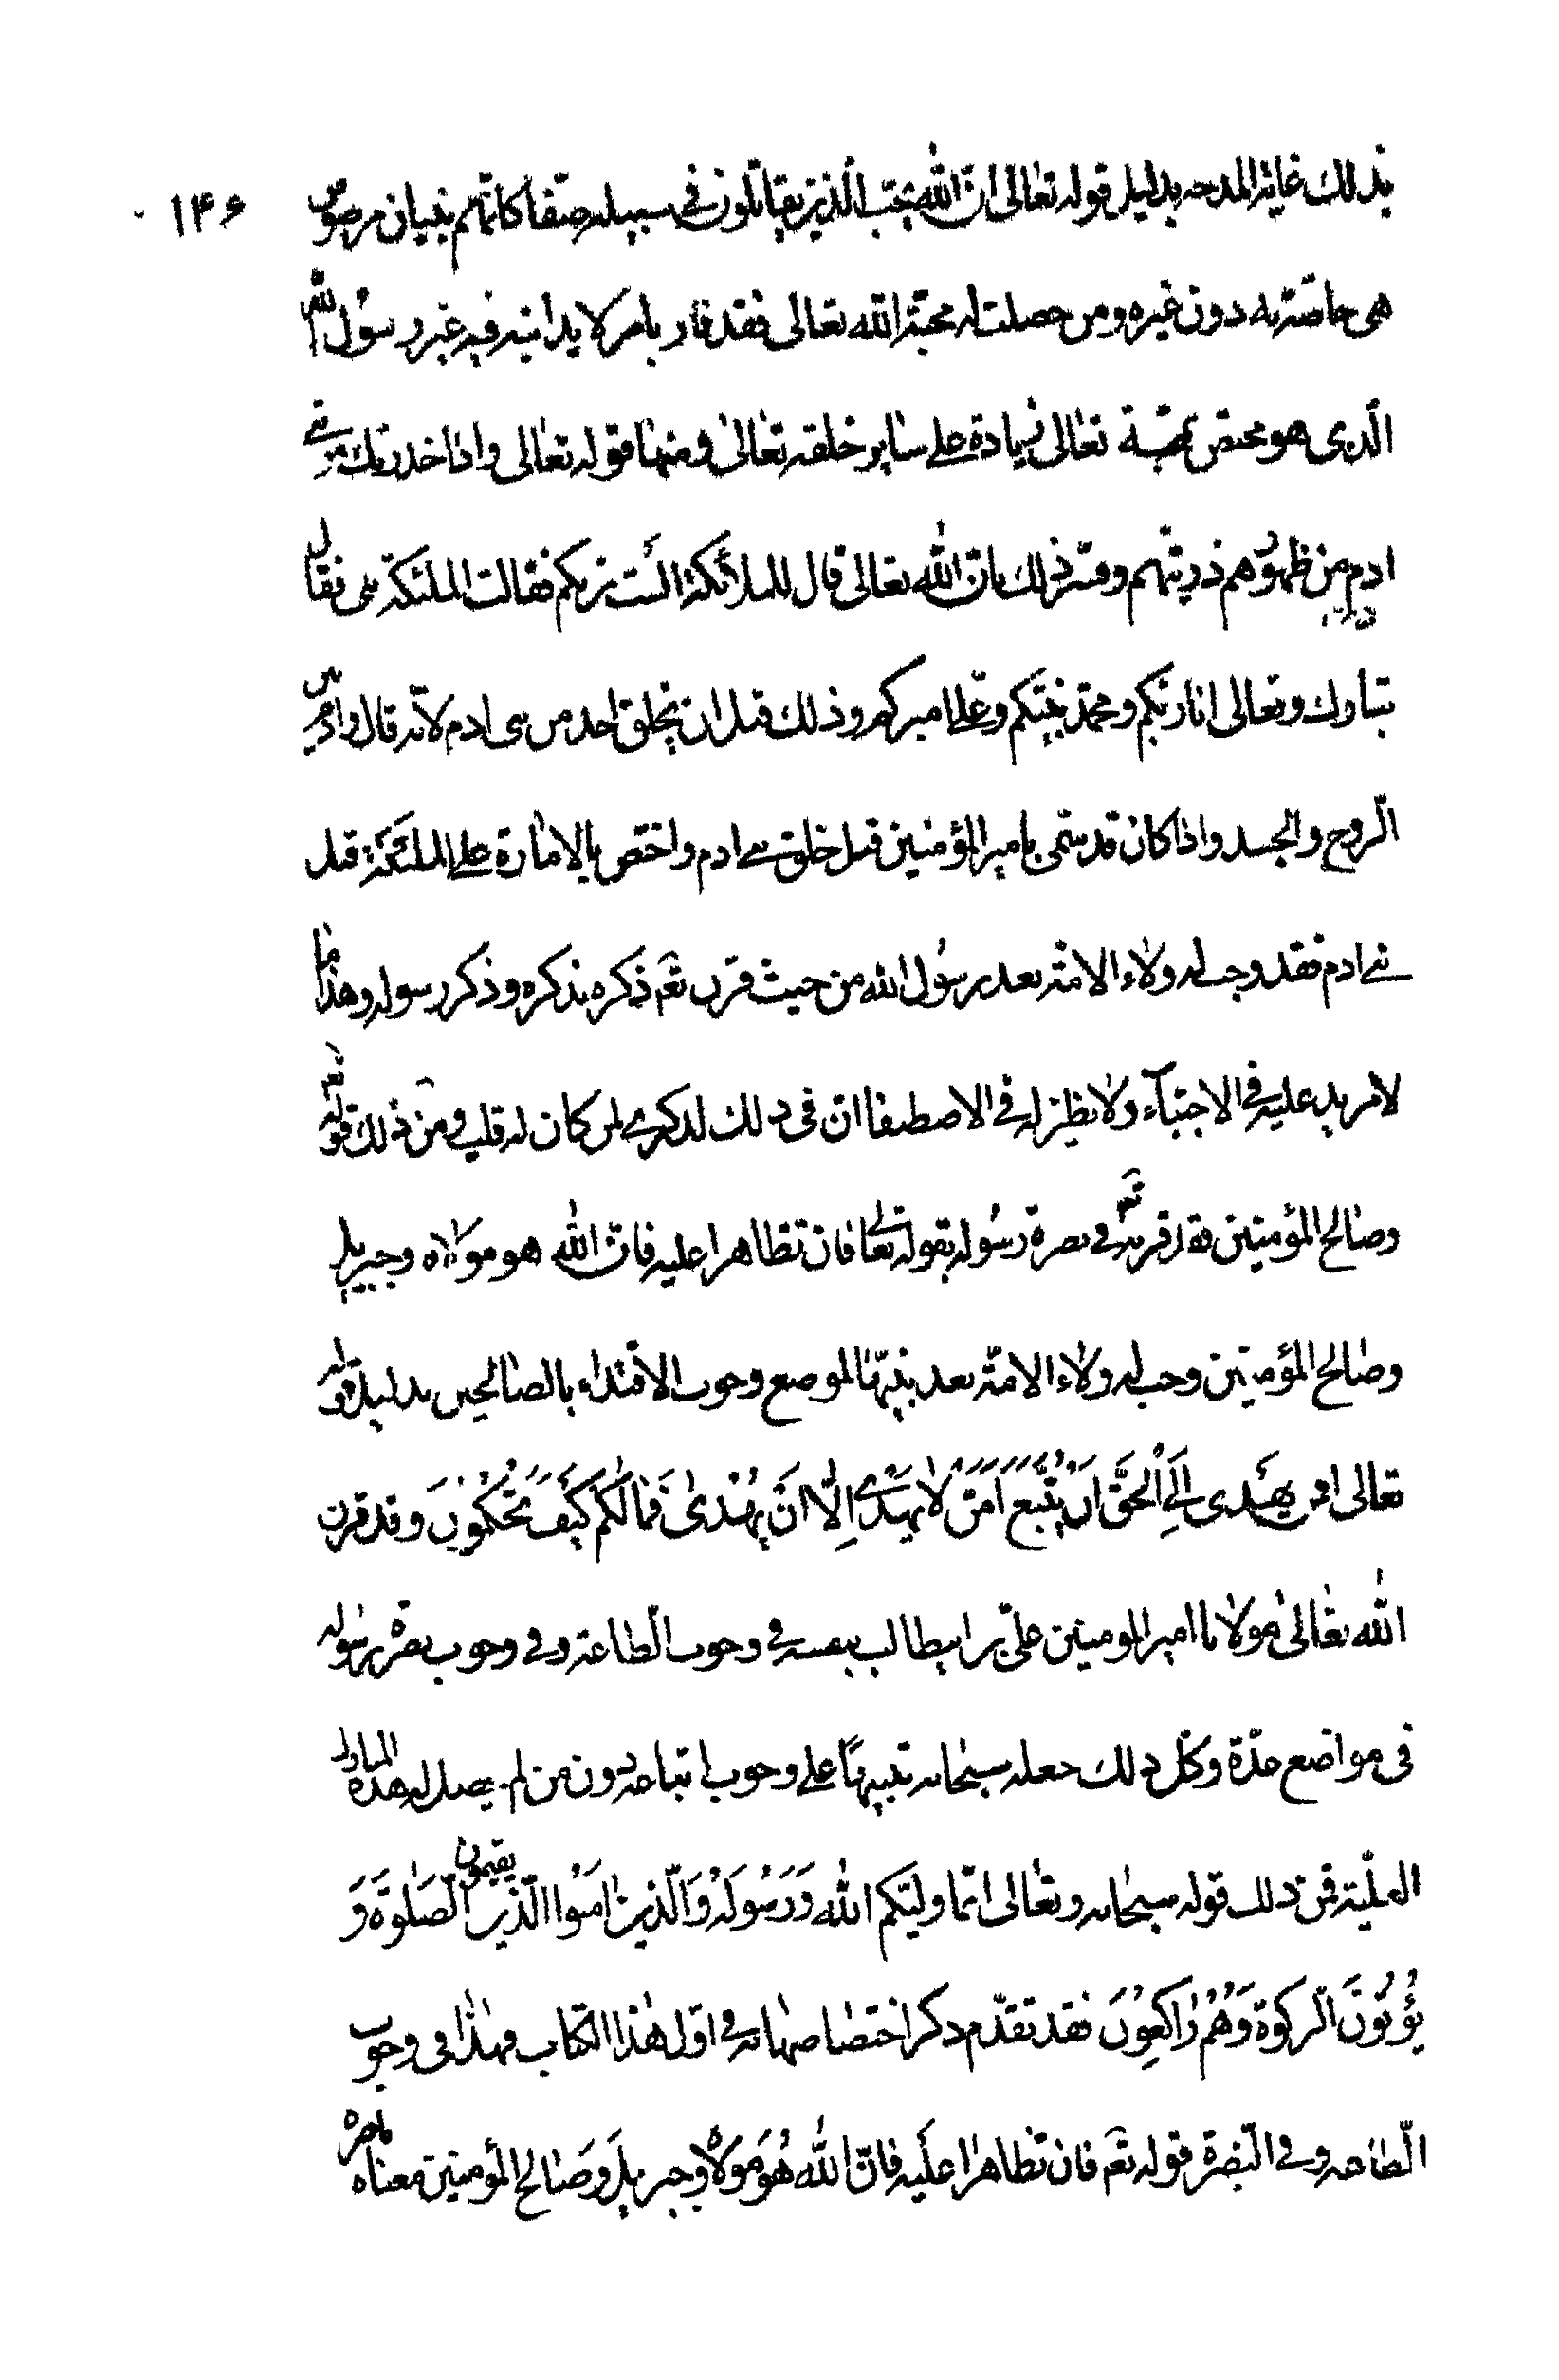 ۱۴۶
بذلك غاية المدحه بدليل قوله تعالى ان الله يحب الذين يقاتلون فى سبيله صفا كانهم بنيان مرصوص
هى خاصة به دون غيره ومن حصلت له محبة الله تعالى فقد فاز بامر لا يدانيه فيه غير رسول الله
الذى هو مختص بمحبة تعالى زيادة على ساير خلقه تعالى ومنها قوله تعالى واذ اخذ ربك من بنى
ادم من ظهورهم ذريتهم وفسر ذلك بان الله تعالى قال للملائكة الست بربكم فقالت الملئكة بلى فقال
تبارك وتعالى انا ربكم ومحمد نبيكم وعلى اميركم وذلك قبل ان يخلق احد من بنى ادم لانه قال وادم بين
الروح والجسد واذا كان قد سمى بامير المؤمنين قبل خلق بنى ادم واختص بالامارة على الملئكة قبل
بنى ادم فقد وجب له ولاء الامة بعد رسول الله من حيث قرن تعم ذكره بذكره وذكر رسوله وهذا ما
لا مزيد عليه فى الاجتباء ولا نظير له فى الاصطفا ان فى ذلك لذكرى لمن كان له قلب ومن ذلك قوله
وصالح المؤمنين فقد قرنه تعم فى نصرة رسوله بقوله تعالى فان تظاهرا عليه فان الله هو مولاه وجبريل
وصالح المؤمنين وجب له ولاء الامة بعد نبيها لموضع وجوب الاقتداء بالصالحين بدليل قوله
تعالى افمن يهدى الى الحق ان يتبع امن لا يهدى الا ان يهدى فما لكم كيف تحكمون وقد قرن
الله تعالى مولانا امير المومنين على بن ابيطالب بنفسه فى وجوب الطاعة وفى وجوب نصرة رسوله
فى مواضع عدة وكل ذلك جعله سبحانه تنبيها على وجوب اتباعه دون من لم يحصل له هذه المنازل
العلية فمن ذلك قوله سبحانه وتعالى انما وليكم الله وَرَسُولَهُ وَالَّذين امَنُوا الّذين يقيمون الصَّلوةَ وَ
يُؤْتُونَ الزكوة وَهُمْ رٰاكِعُونَ فقد تقدم ذكر اختصاصها به فى اول هذا الكتاب فهذا فى وجوب
الطاعه وفى النصرة قوله تعم فان تظاهرا عليه فان الله هُوَ مَوْلاهُ وجبريل وصالح المؤمنين معناه ناصره